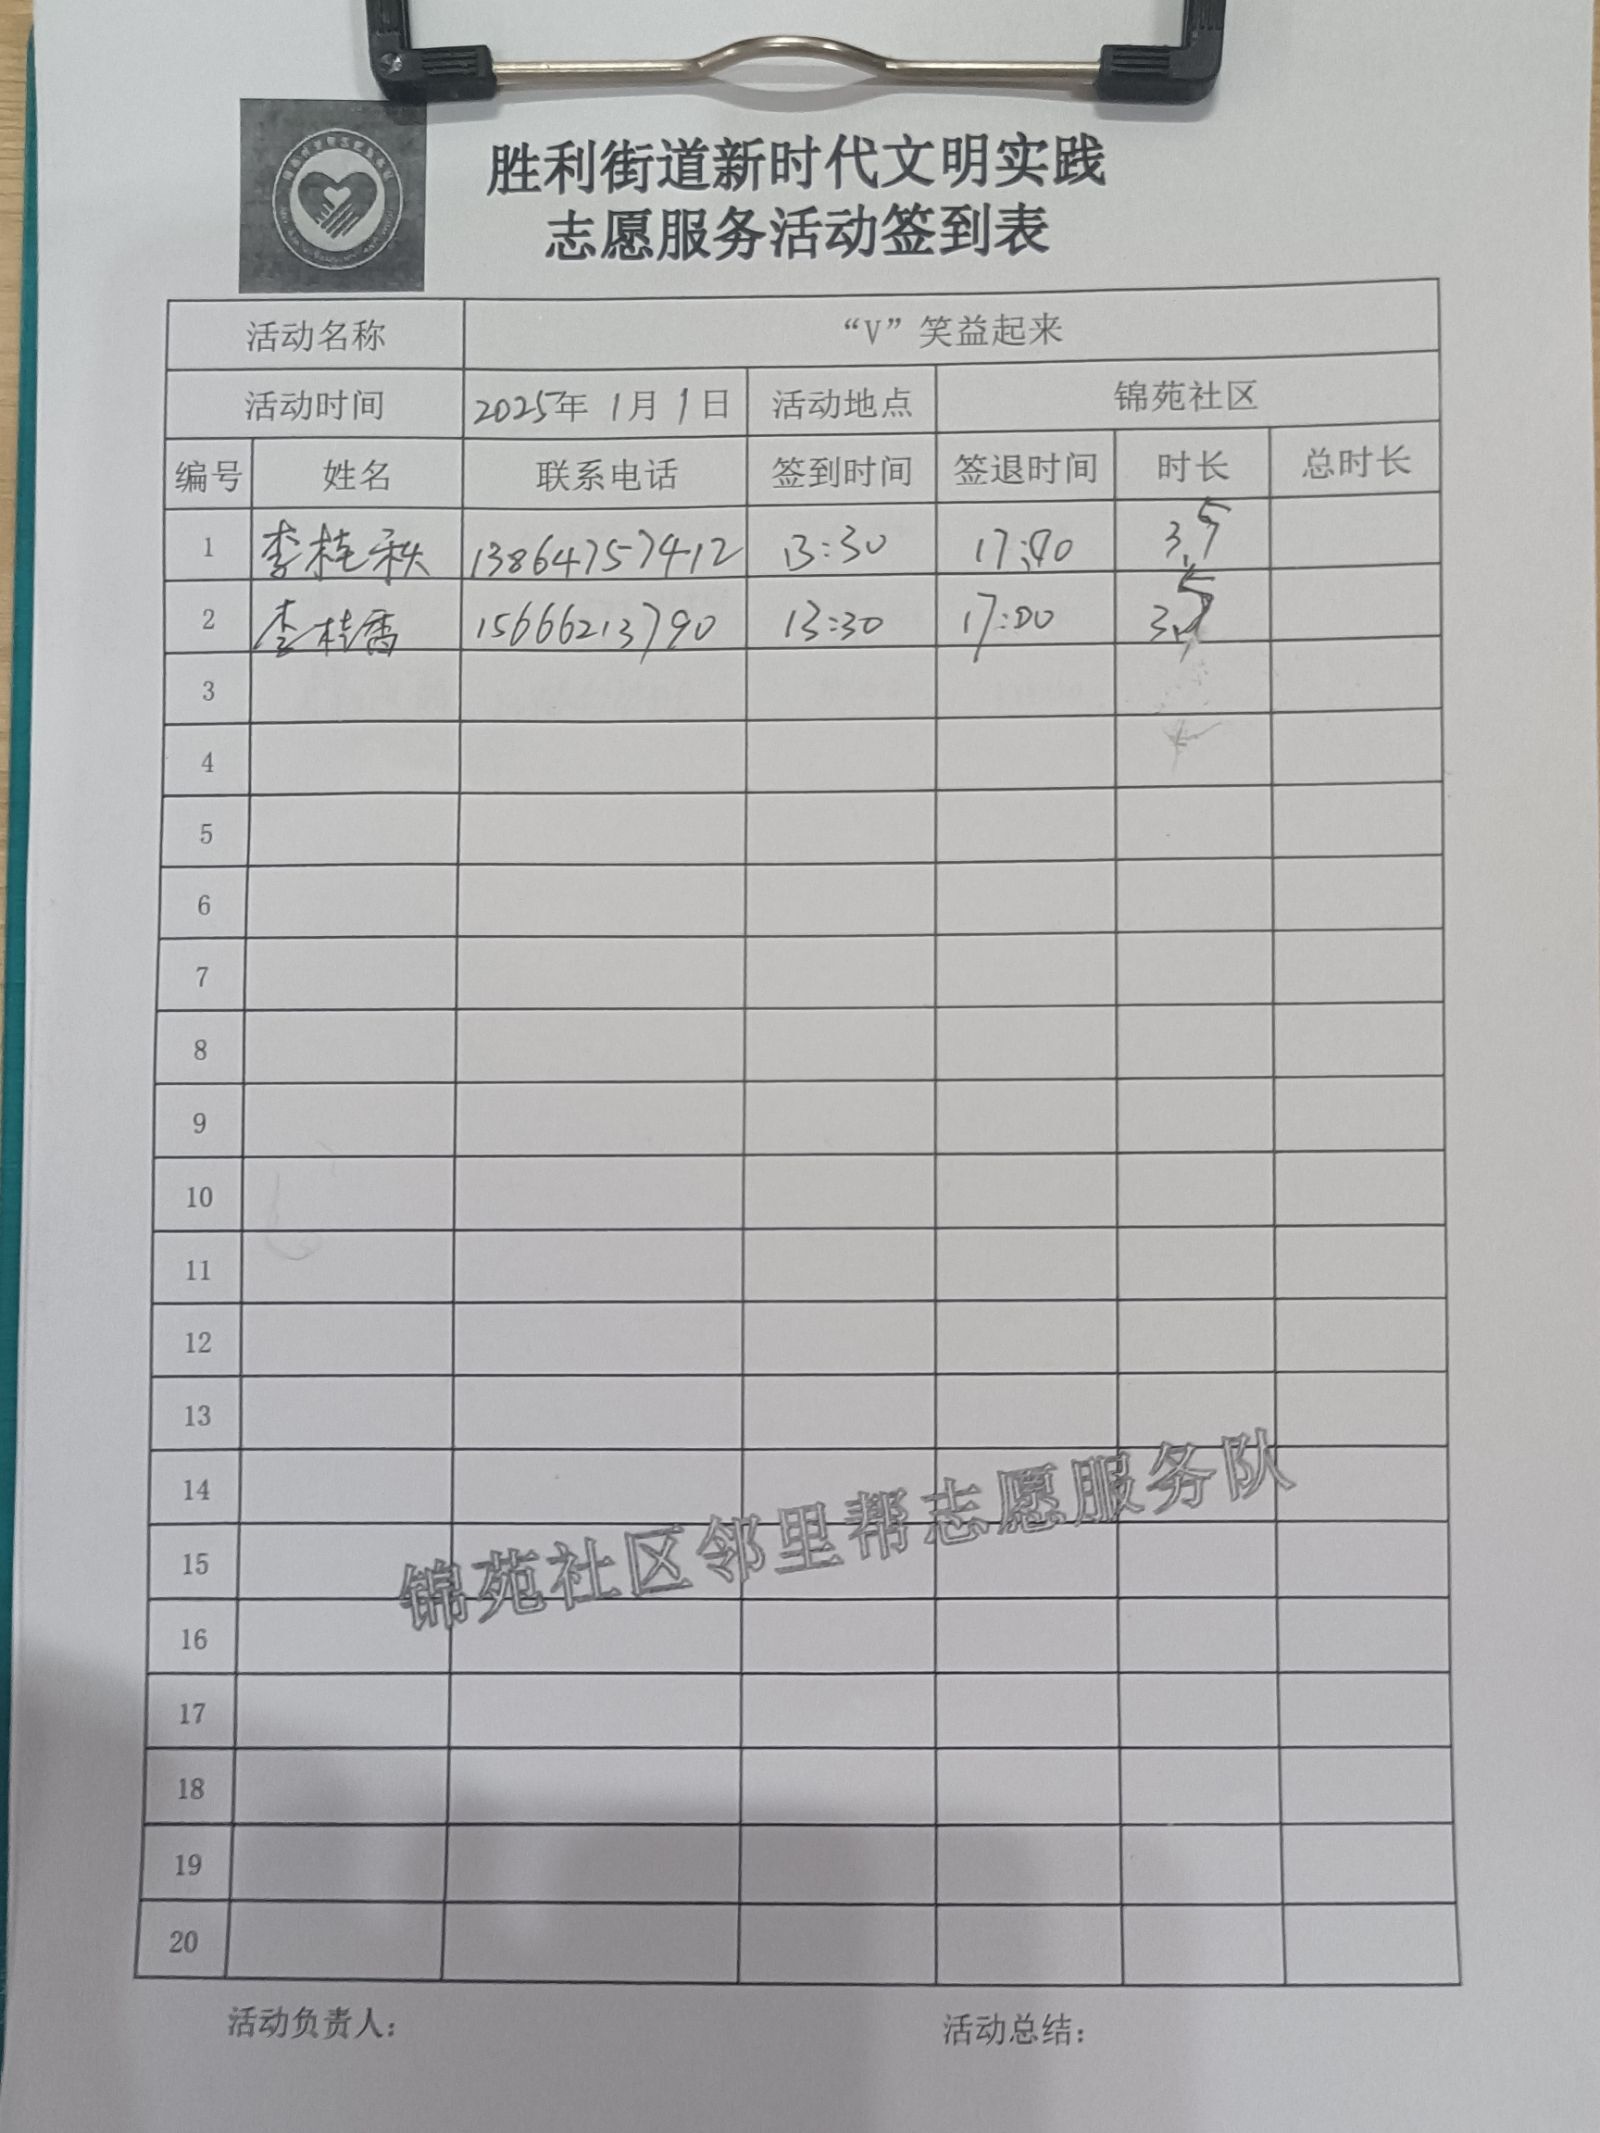 胜利街道新时代文明实践
志愿服务活动签到表
活动名称 “V”笑益起来
活动时间 2025年 1月 1日 活动地点 锦苑社区
编号 姓名 联系电话 签到时间 签退时间 时长 总时长
1 李桂秋 13864757412 13:30 17:00 3.5
2 李桂香 15666213790 13:30 17:00 3.5
3
4
5
6
7
8
9
10
11
12
13
14
15
16
17
18
19
20
锦苑社区邻里帮志愿服务队
活动负责人： 活动总结：